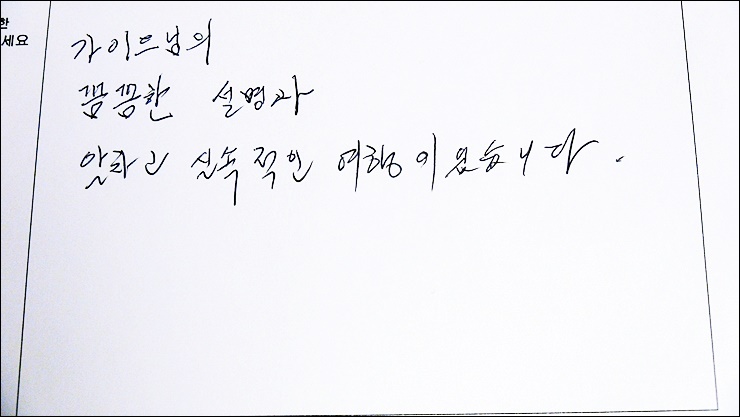 한
세요
가이드님의
꼼꼼한 설명과
알차고 실속적인 여행이었습니다.